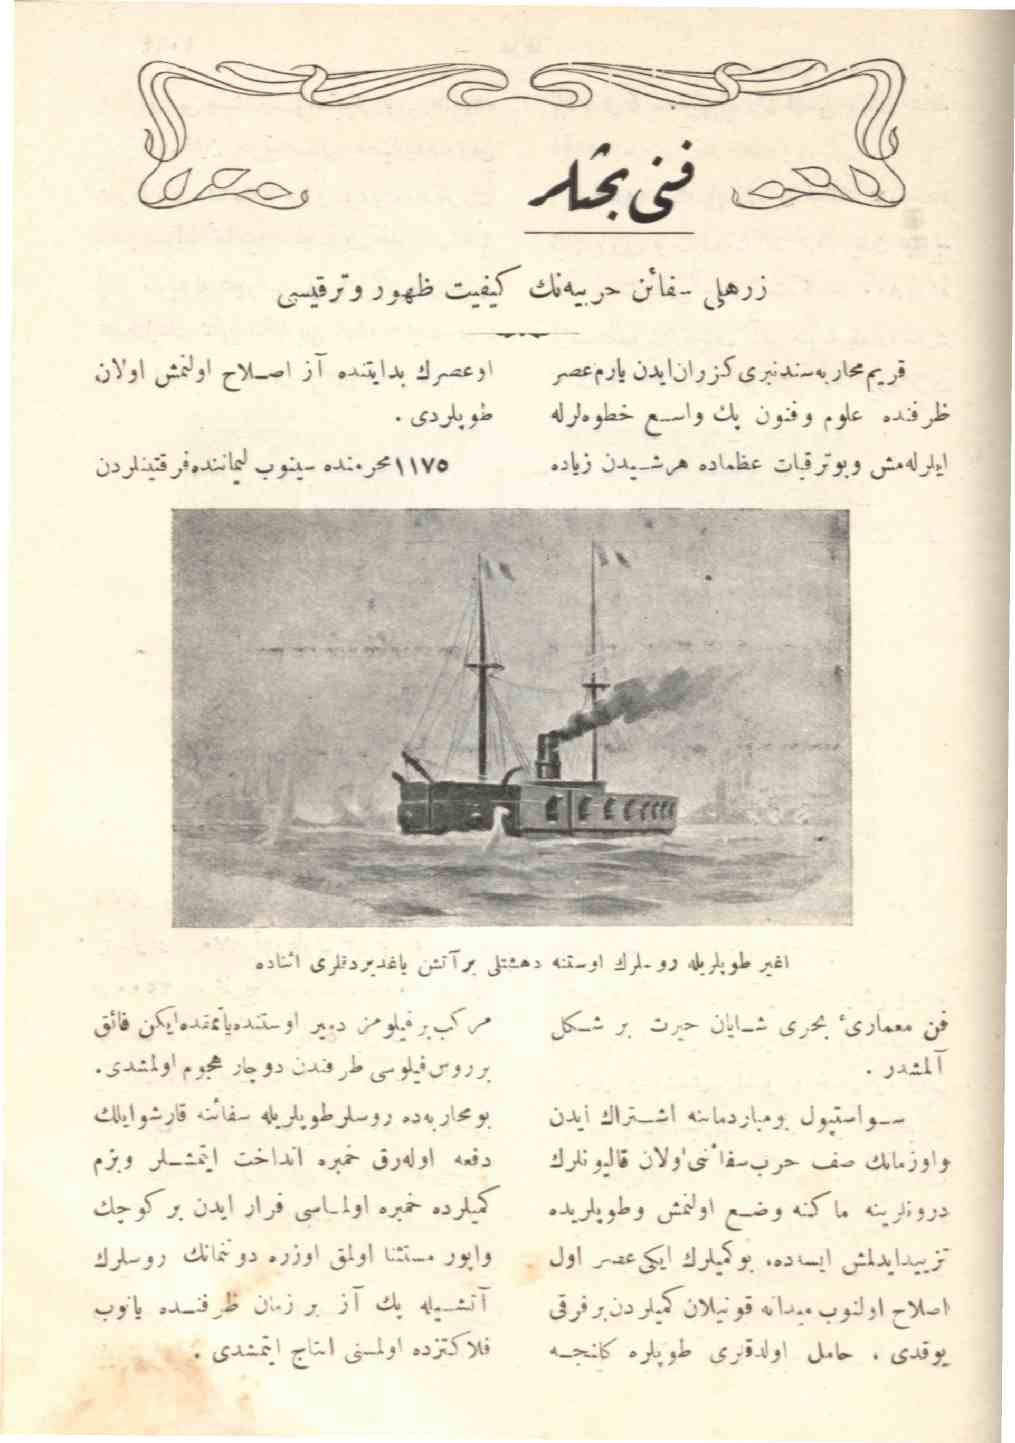 فنی بحثلر
زرهلی سفائن حربیه‌نك كیفیت ظهور وترقیسی
قریم محاربه‌سندنبری كزران ایدن یارم عصر
ظرفنده علوم وفنون پك واسع خطوه‌لرله
ایلرله‌مش وبوترقیات عظماده هرشیدن زیاده
اوعصرك بدایتنده آز اصلاح اولنمش اولان
طوپلردی .
١١٧٥ محرمنده سینوب لیماننده فرقتینلردن
اغیر طوپلریله روسلرك اوستنه دهشتلی برآتش یاغدیردقلری اثناده
فن معماریٔ بحری شایان حیرت بر شكل
آلمشدر .
سواستپول بومباردماننه اشتراك ایدن
واوزمانك صف حرب سفائنی اولان قالیونلرك
درونلرینه ماكنه وضع اولنمش وطوپلریده
تزییدایدلمش ایسه‌ده، بوكمیلرك ایكی عصر اول
اصلاح اولنوب میدانه قونیلان كمیلردن برفرقی
یوقدی . حامل اولدقلری طوپلره كلنجه
مركب برفیلومز دمیر اوستنده‌یاتمقده‌ایكن فائق
برروس فیلوسی طرفندن دوچار هجوم اولمشدی.
بومحاربه‌ده روسلرطوپلریله سفائنه قارشوایلك
دفعه اوله‌رق خمبره انداخت ایتمشلر وبزم
كمیلرده خمبره اولماسی فرار ایدن بر كوچك
واپور مستثنا اولمق اوزره دونمانك روسلرك
آتشیله پك آز بر زمان ظرفنده یانوب
فلاكتزده اولمسنی انتاج ایتمشدی .